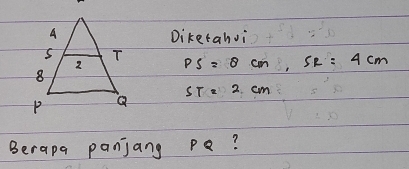 4
S 2 T
8
P Q
Diketahui
PS = 8 cm, SR = 4 cm
ST = 2 cm
Berapa panjang PQ ?